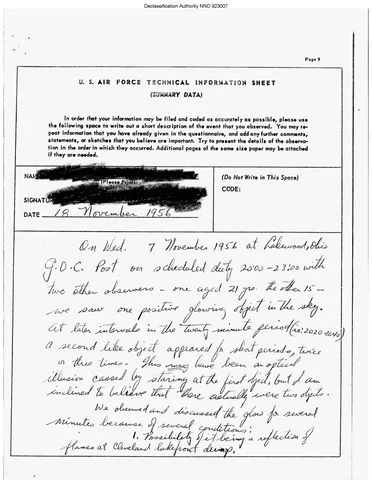 Declassification Authority NND 923007
Page 9
U. S. AIR FORCE TECHNICAL INFORMATION SHEET
(SUMMARY DATA)
In order that your information may be filed and coded as accurately as possible, please use
the following space to write out a short description of the event that you observed. You may re-
peat information that you have already given in the questionnaire, and add any further comments,
statements, or sketches that you believe are important. Try to present the details of the observa-
tion in the order in which they occurred. Additional pages of the same size paper may be attached
if they are needed.
NAME
(Please Print)
(Do Not Write in This Space)
CODE:
SIGNATUR
DATE 18 November 1956
On Wed. 7 November 1956 at Lakewood, Ohio
G.O.C. Post on scheduled duty 2000-2300 with
two other observers - one aged 21 yrs. the other 15 -
we saw one positive glowing object in the sky.
At later intervals in the twenty minute period (ie: 2020-2040)
a second like object appeared for short periods, twice
or three times. This may have been an optical
illusion caused by staring at the first object, but I am
inclined to believe that there actually were two objects.
We observed and discussed the glow for several
minutes because of several conditions:
1. Possibility of it being a reflection of
flames at Cleveland lakefront dump.